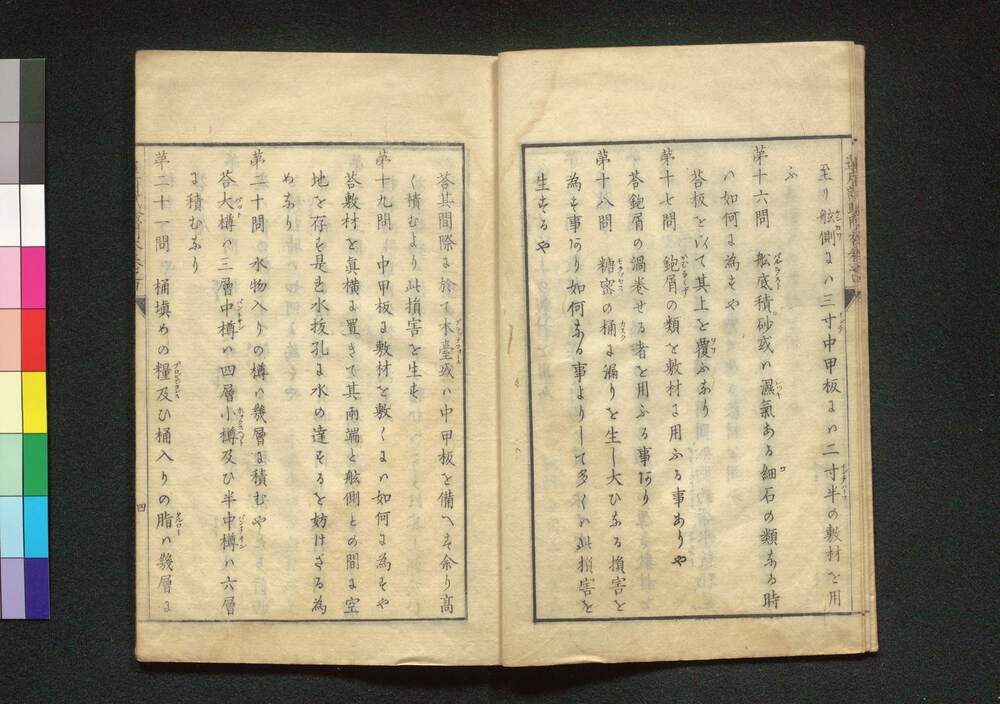 至り舷側にハ三寸中甲板にハ二寸半の敷材を用
ふ
第十六問 舩底積砂或ハ濕氣ある細石の類なる時
ハ如何に為すや
答板を以て其上を覆ふなり
第十七問 鉋屑の類を敷材に用ふる事ありや
答鉋屑の渦巻せる者を用ふる事あり
第十八問 糖密の桶に漏りを生し大ひなる損害を
為す事あり如何なる事よりして多くハ此損害を
生するや
答其間隙に於て木臺或ハ中甲板を備へす余り高
く積むより此損害を生す
第十九問 中甲板に敷材を敷くにハ如何に為すや
答敷材を真横に置きて其兩端と舷側との間に空
地を存す是を水抜孔に水の達するを妨けさる為
めなり
第二十問 水物入りの樽ハ幾層に積むや
答大樽ハ三層中樽ハ四層小樽及ひ半中樽ハ六層
に積むなり
第二十一問 桶填めの糧及ひ桶入りの脂ハ幾層に
四